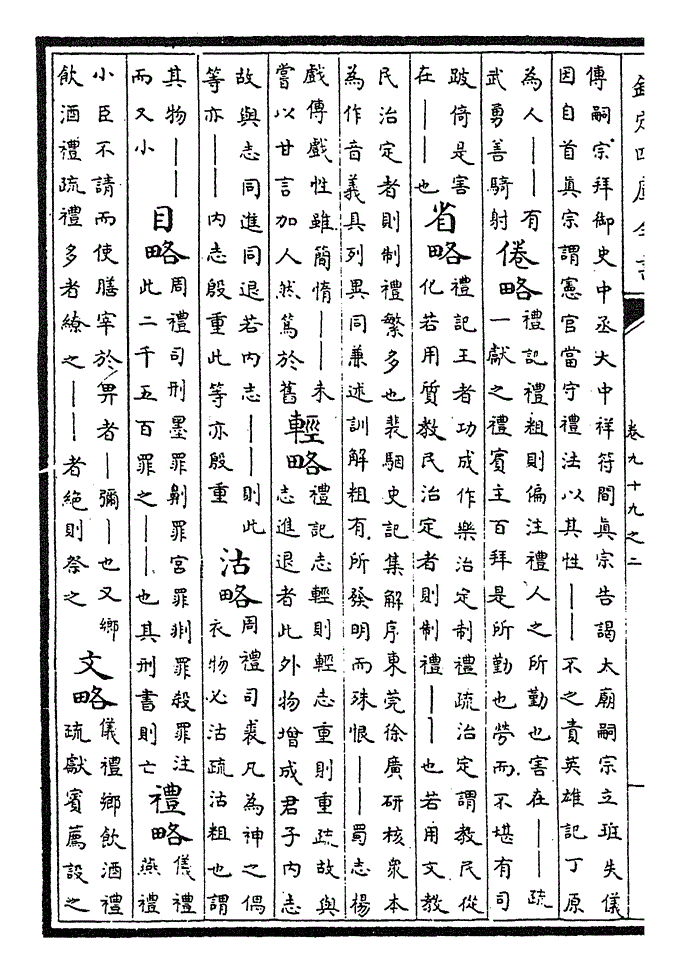 欽定四庫全書 卷九十九之二
傳嗣宗拜御史中丞大中祥符間真宗告謁太廟嗣宗立班失儀
因自首真宗謂憲官當守禮法以其性——不之責英雄記丁原
為人——有
武勇善騎射
倦略
禮記禮粗則偏注禮人之所勤也害在——疏
一獻之禮賓主百拜是所勤也勞而不堪有司
跛倚是害
在——也
省略
禮記王者功成作樂治定制禮疏治定謂教民從
化若用質教民治定者則制禮——也若用文教
民治定者則制禮繁多也裴駰史記集解序東莞徐廣研核衆本
為作音義具列異同兼述訓解粗有所發明而殊恨——蜀志楊
戲傳戲性雖簡惰——未
嘗以甘言加人然篤於舊
輕略
禮記志輕則輕志重則重疏故與
志進退者此外物增成君子内志
故與志同進同退若内志——則此
等亦——内志殷重此等亦殷重
沽略
周禮司裘凡為神之偶
衣物必沽疏沽粗也謂
其物——
而又小
目略
周禮司刑墨罪劓罪宫罪刖罪殺罪注
此二千五百罪之——也其刑書則亡
禮略
儀禮
燕禮
小臣不請而使膳宰於卑者—彌—也又鄉
飲酒禮疏禮多者繚之——者絶則祭之
文略
儀禮鄉飲酒禮
疏獻賓薦設之